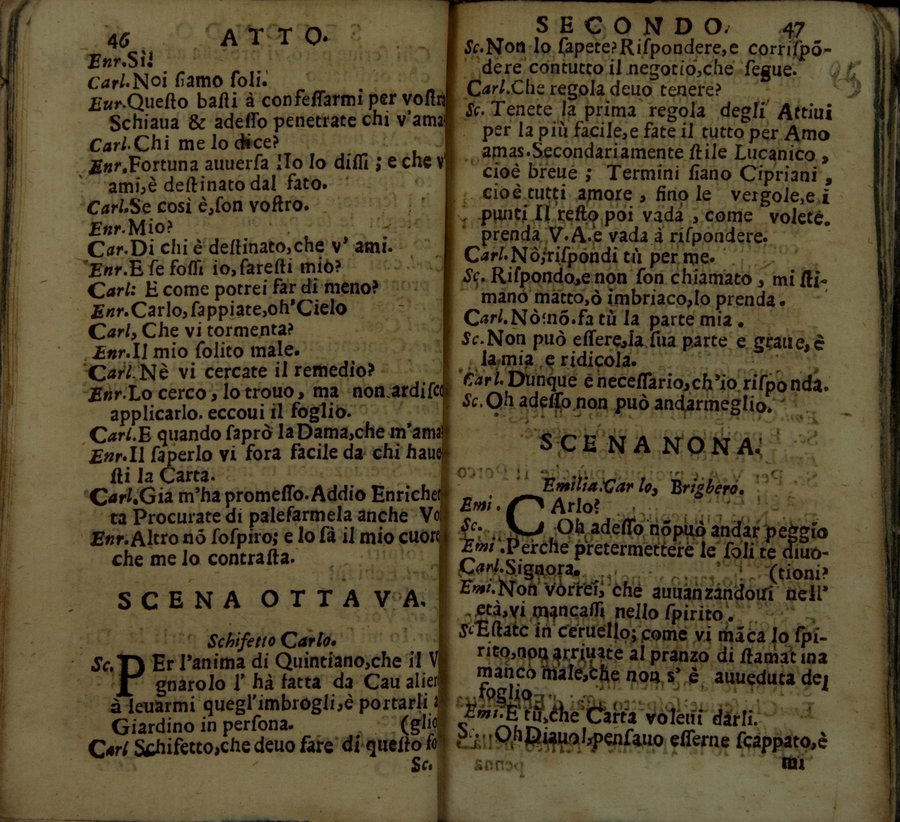 46 ATTO.
Enr.Sì!
Carl.Noi ſiamo ſoli.
Eur.Queſto baſti à confeſſarmi per voſtr
Schiaua & adeſſo penetrate chi v'ama
Carl.Chi me lo dice?
Enr.Fortuna auuerſa !Io lo diſſi ; e che v
ami,è deſtinato dal fato.
Carl.Se così è,ſon voſtro.
Enr.Mio?
Car.Di chi è deſtinato,che v' ami.
Enr.E ſe foſſi io,fareſti mio?
Carl: E come potrei far di meno?
Enr.Carlo,ſappiate,oh'Cielo
Carl, Che vi tormenta?
Enr.Il mio ſolito male.
Carl.Nè vi cercate il remedio?
Enr.Lo cerco, lo trouo, ma non ardiſco
applicarlo. eccoui il foglio.
Carl.E quando ſaprò la Dama,che m'ama
Enr.Il ſaperlo vi fora facile da chi haue
ſti la Carta.
Carl.Gia m'ha promeſſo.Addio Enrichet
ta Procurate di paleſarmela anche Vo
Enr.Altro nō ſoſpiro; e lo ſà il mio cuore
che me lo contraſta.
SCENA OTTAVA.
Schifetto Carlo.
Sc.PEr l'anima di Quintiano,che il V
gnarolo l' hà fatta da Cau alier
à leuarmi quegl'imbrogli,è portarli a
Giardino in perſona. (glio
Carl Schifetto,che deuo fare di queſto fo
Sc.
SECONDO. 47
Sc.Non lo ſapete?Riſpondere,e corriſpō-
dere contutto il negotio,che ſegue.
Carl.Che regola deuo tenere?
Sc. Tenete la prima regola degli Attiui
per la più facile,e fate il tutto per Amo
amas.Secondariamente ſtile Lucanico ,
cioè breue ; Termini ſiano Cipriani ,
cioè tutti amore , fino le vergole,e i
punti Il reſto poi vada , come volete.
prenda V.A.e vada à riſpondere.
Carl.Nò;riſpondi tù per me.
Sc. Riſpondo,e non ſon chiamato , mi ſti-
mano matto,ò imbriaco,lo prenda.
Carl.Nò:nō.fa tù la parte mia .
Sc.Non può eſſere,la ſua parte e graue,è
la mia e ridicola.
Carl.Dunque è neceſſario,ch'io riſponda.
Sc.Oh adeſſo non può andarmeglio.
SCENA NONA.
Emilia.Car lo, Brighero.
Emi. CArlo?
Sc. Oh adeſſo nōpuò andar peggio
Emi.Perche pretermettere le ſoli te diuo-
Carl.Signora. (tioni?
Emi.Non vorrei, che auuanzandoui nell'
età,vi mancaſſi nello ſpirito.
Sc Eſtate in ceruello; come vi māca lo ſpi-
rito,non arriuate al pranzo di ſtamat ina
manco male,che non s' è auueduta del
foglio
Emi.E tù,che Carta voleui darli.
Sc. Oh Diauol,penſauo eſſerne ſcappato,è
mi